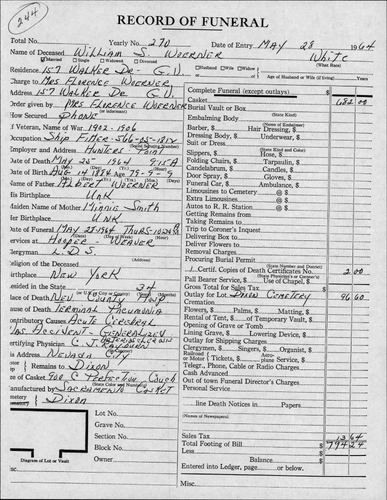 244
RECORD OF FUNERAL
Total No. Yearly No. 270 Date of Entry MAY 28 1964
Name of Deceased WILLIAM S. WOERNER White
(What Race)
Married Single Widowed Divorced Husband Wife Widow
Residence 157 WALKER Dr - G.V.
Age of Husband or Wife (if living) Years
Charge to MRS FLORENCE WOERNER
Complete Funeral (except outlays) $
Address 157 WALKER Dr G.V.
Casket 682.00
Order given by MRS FLORENCE WOERNER
Burial Vault or Box
(State Kind)
How Secured PHONE
Embalming Body
(Name of Embalmer)
If Veteran, Name of War 1902-1906
Barber, $ Hair Dressing, $
Occupation Ship Fitter - 566-05-1812
Dressing Body, $ Underwear, $
Suit or Dress
Employer and Address HUNTERS Point
(State Kind and Color)
Slippers, $ Hose, $
Date of Death MAY 25 1964 9:15 A
Folding Chairs, $ Tarpaulin, $
Date of Birth AUG 14 1884 Age 79-9-9
Candelabrum, $ Candles, $
Door Spray, $ Gloves, $
Name of Father ALBERT WOERNER
Funeral Car, $ Ambulance, $
His Birthplace UNK
Limousines to Cemetery @ $
Extra Limousines @ $
Maiden Name of Mother Minnie Smith
Autos to R. R. Station @ $
Her Birthplace UNK
Getting Remains from
Taking Remains to
Date of Funeral MAY 28-1964 THURS 10:30 A M
Trip to Coroner's Inquest
Services at HOOPER - WEAVER
Delivering Box to
(Address)
Deliver Flowers to
Clergyman L.D.S.
Removal Charges
Religion of the Deceased
Procuring Burial Permit
(State Number and District)
Birthplace NEW YORK
1 Certif. Copies of Death Certificates No. 2.00
Resided in the State 34
Pall Bearer Service, $ Use of Chapel, $
Gross Total for Sales Tax $
Place of Death NEV COUNTY Hosp
Outlay for Lot DIXON CEMETERY 96.60
Cause of Death TERMINAL PNEUMONIA
Cremation
Flowers, $ Palms, $ Matting, $
Contributory Causes ACUTE CEREBRAL
Rental of Tent, $ of Temporary Vault, $
VAS. ACCIDENT GENERALIZED
Opening of Grave or Tomb
Lining Grave, $ Lowering Device, $
Certifying Physician C J
Outlay for Shipping Charges
His Address NEVADA City
Clergymen, $ Singers, $ Organist, $
Railroad or Motor $ Tickets, $ Aeroplane Service, $
Remains to DIXON
Telegr., Phone, Cable or Radio Charges
Cash Advanced
Out of town Funeral Director's Charges
Manufactured by SACRAMENTO CASKET
Personal Service
DIXON
line Death Notices in Papers
Lot No.
(Names of Newspapers)
Grave No.
Section No.
Sales Tax 13 64
Block No.
Total Footing of Bill $ 794 24
Less $
Owner
Balance $
Diagram of Lot or Vault
Entered into Ledger, page or below.
Misc.